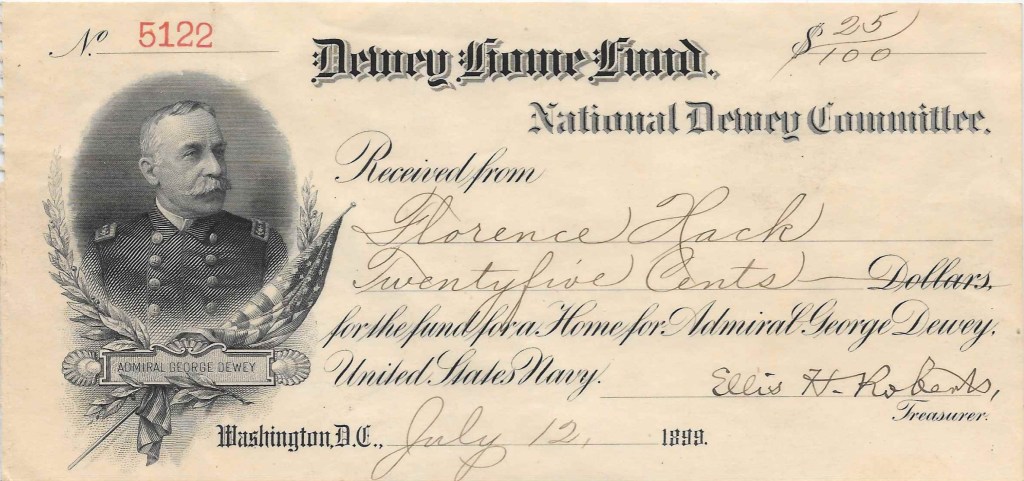 No 5122
$ 25/100
Dewey Home Fund.
National Dewey Committee.
Received from
Florence Hack
Twentyfive Cents — Dollars,
for the fund for a Home for Admiral George Dewey,
United States Navy.
Ellis H. Roberts,
Treasurer.
ADMIRAL GEORGE DEWEY
Washington, D.C., July 12, 1899.